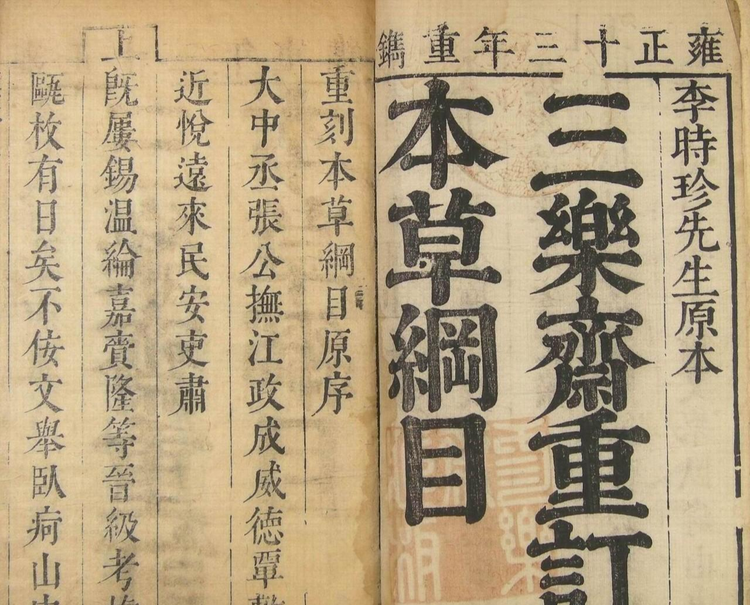 雍正十三年重鐫
李時珍先生原本
三樂齋重訂
本草綱目
重刻本草綱目原序
大中丞張公撫江政成威德覃
近悅遠來民安吏肅
上
既屢錫温綸嘉賚隆等晉級考
甌枚有日矣不佞文舉臥痾山